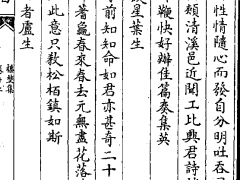 性情隨心而發自分明吐吞
頗清溪邑近聞工比興君詩
鞭快好辦佳篇奏集英
星葉生
前知知命如君亦甚奇二十
蓍龜春來春去元無盡花落
此意只教松栢鎮如斯
者盧生